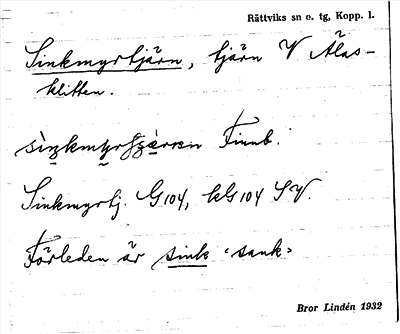 Rättviks sn o. tg, Kopp. l.
Sinkmyrtjärn, tjärn V Älas-
klitten.
Finnb.
Sinkmyrtj. G104, kG104 SV.
Förleden är sink 'sank'
Bror Lindén 1932